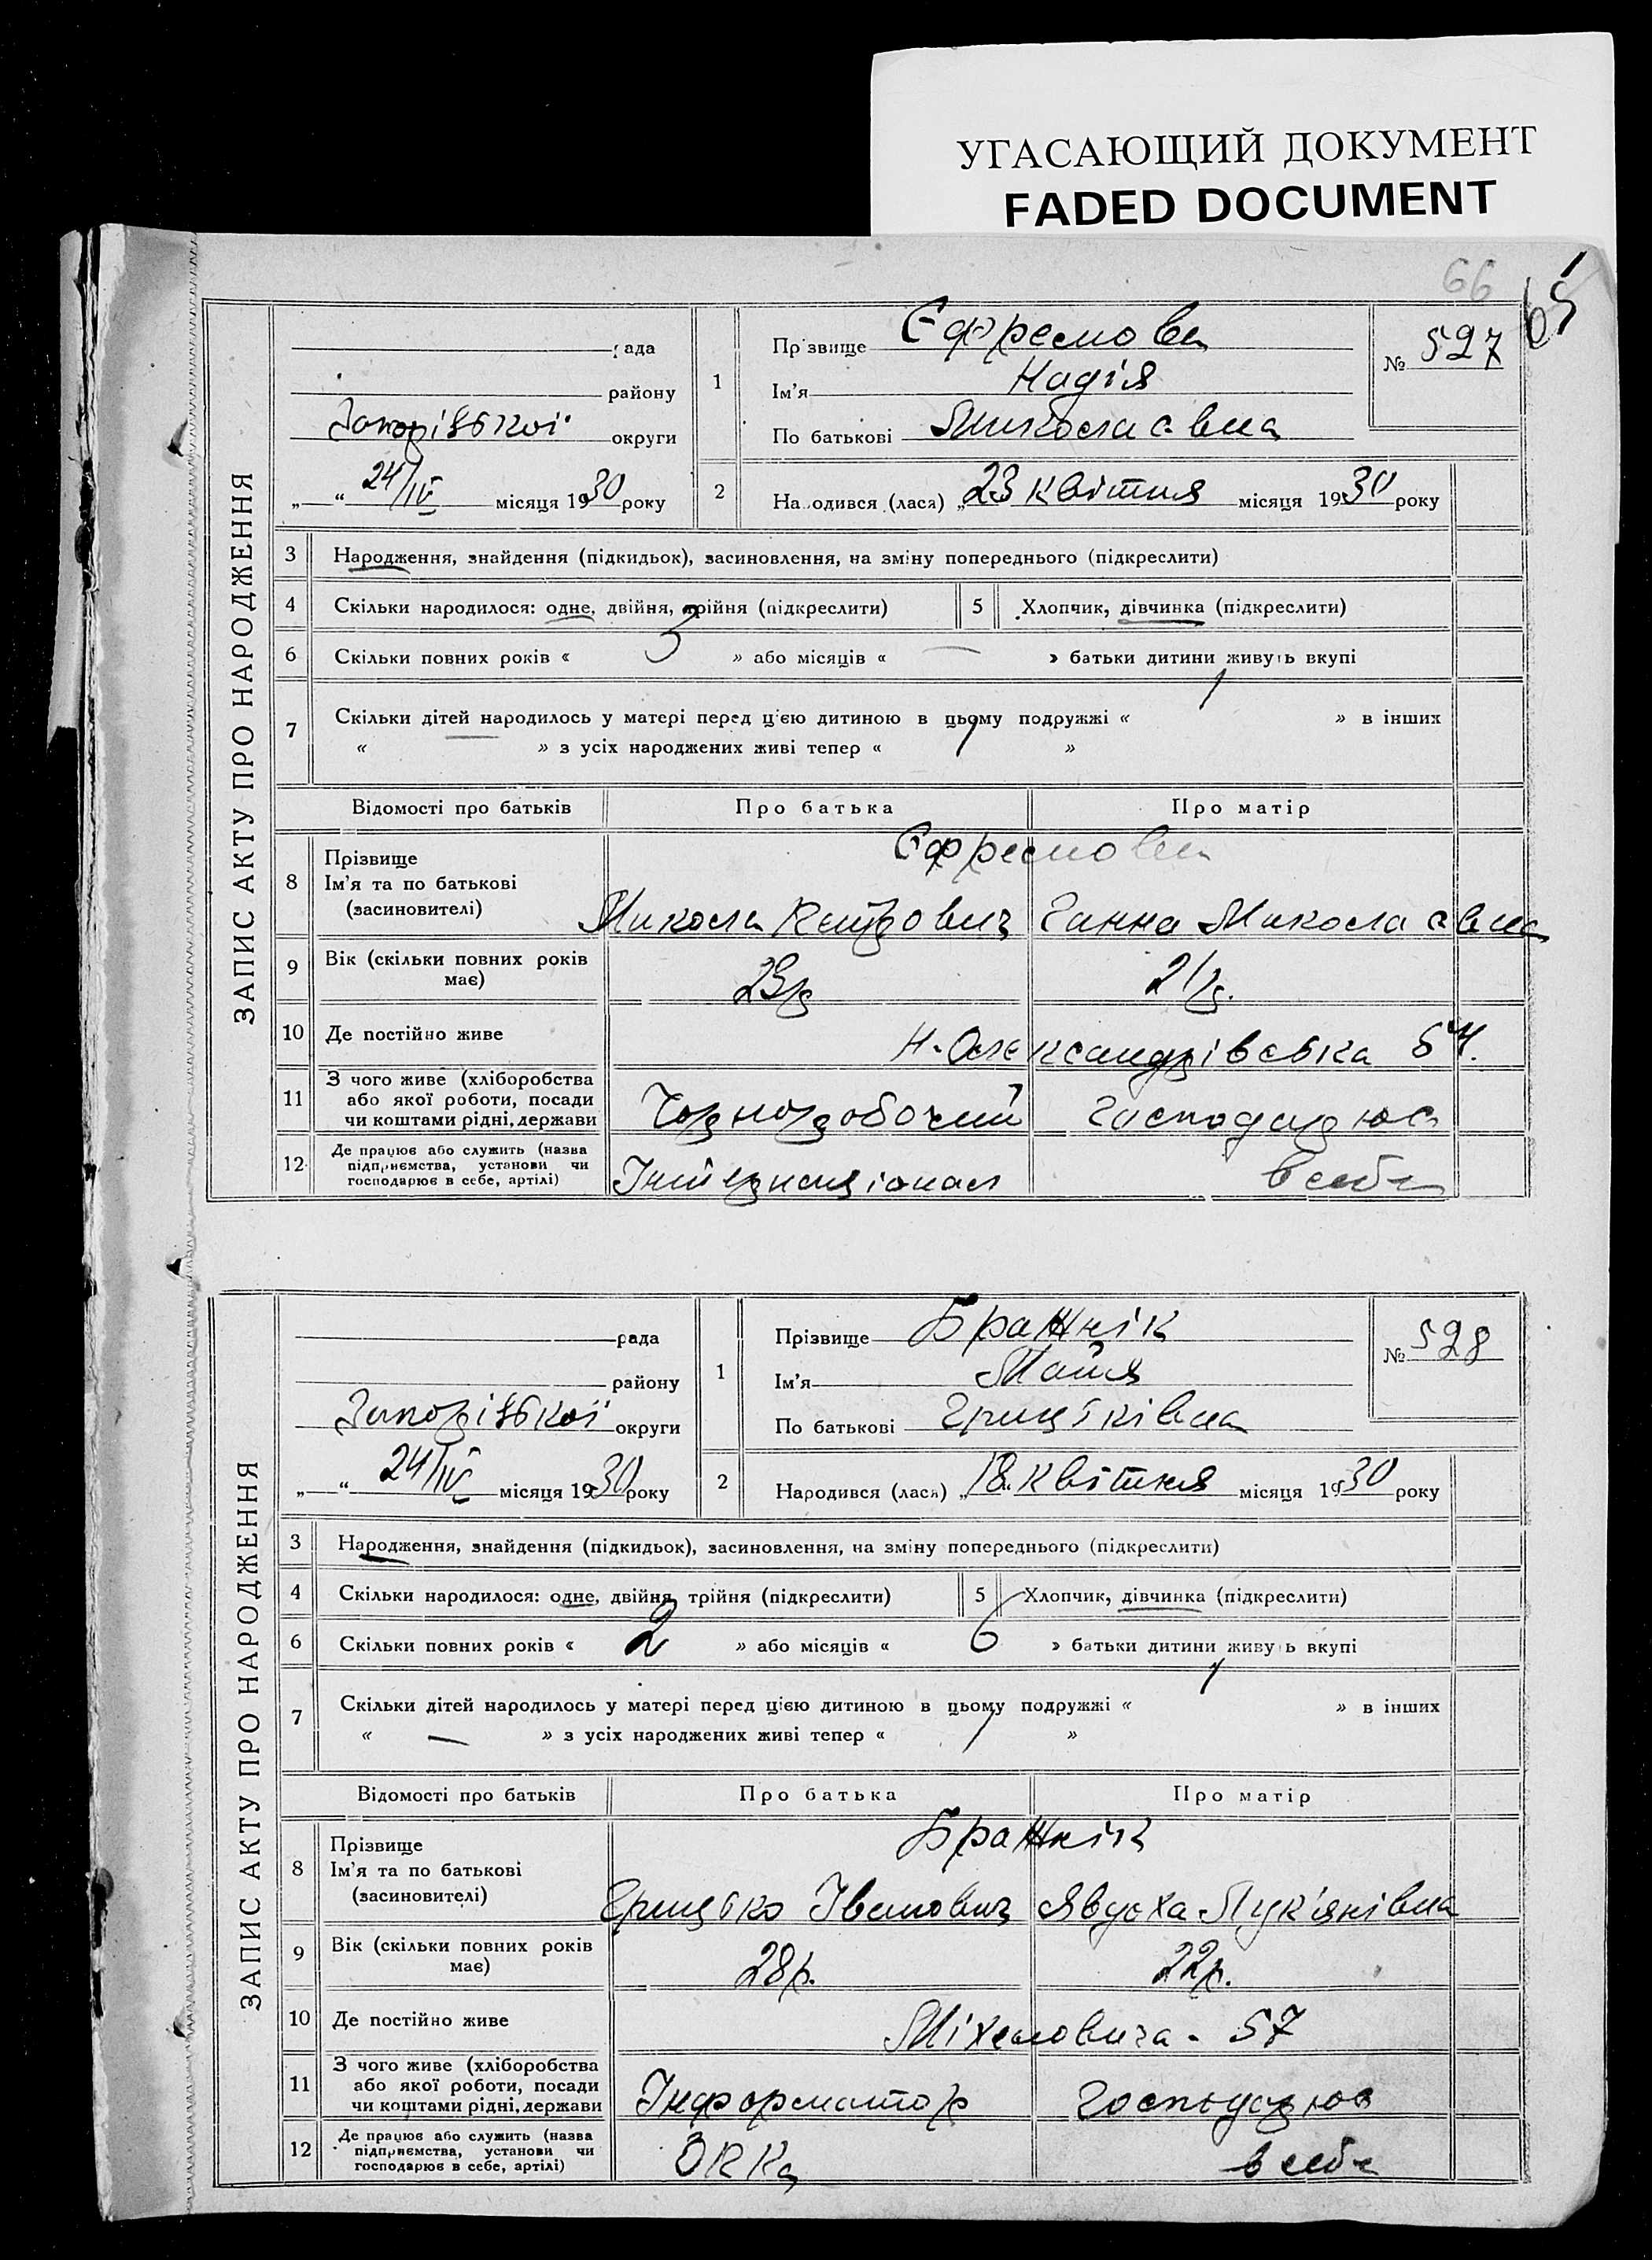 УГАСАЮЩИЙ ДОКУМЕНТ
FADED DOCUMENT
66
65
ЗАПИС АКТУ ПРО НАРОДЖЕННЯ
рада
району
Запоріськоі округи
„ “ 24/IV місяця 1930 року
1
Прізвище Єфремова
Ім'я Надія
По батькові Миколаєвна
№ 527
2 Народився (лася) „23 квітня місяця 1930 року
3 Народження, знайдення (підкидьок), засиновлення, на зміну попереднього (підкреслити)
4 Скільки народилося: одне, двійня, трійня (підкреслити) 5 Хлопчик, дівчинка (підкреслити)
6 Скільки повних років « 3 » або місяців « — » батьки дитини живуть вкупі
7 Скільки дітей народилось у матері перед цією дитиною в цьому подружжі « 1 » в інших
« — » з усіх народжених живі тепер « 1 »
Відомості про батьків Про батька Про матір
8 Прізвище Єфремови
Ім'я та по батькові
(засиновителі) Микола Петрович Ганна Миколаєвна
9 Вік (скільки повних років має) 23р 21р.
10 Де постійно живе Н-Олександрівська 54.
11 З чого живе (хліборобства або якої роботи, посади чи коштами рідні, держави Чорноробочий Господарює
12 Де працює або служить (назва підприємства, установи чи господарює в себе, артілі) Інтернаціонал в себе
ЗАПИС АКТУ ПРО НАРОДЖЕННЯ
рада
району
Запоріської округи
„ “ 24/IV місяця 1930 року
1
Прізвище Бражнік
Ім'я Майя
По батькові Грицьківна
№ 528
2 Народився (лася) „18. квітня місяця 1930 року
3 Народження, знайдення (підкидьок), засиновлення, на зміну попереднього (підкреслити)
4 Скільки народилося: одне, двійня, трійня (підкреслити) 5 Хлопчик, дівчинка (підкреслити)
6 Скільки повних років « 2 » або місяців « 6 » батьки дитини живуть вкупі
7 Скільки дітей народилось у матері перед цією дитиною в цьому подружжі « 1 » в інших
« — » з усіх народжених живі тепер « 1 »
Відомості про батьків Про батька Про матір
8 Прізвище Бражнік
Ім'я та по батькові
(засиновителі) Грицько Іванович Явдоха Лук'янівна
9 Вік (скільки повних років має) 28р. 22р.
10 Де постійно живе Міхеловича - 57
11 З чого живе (хліборобства або якої роботи, посади чи коштами рідні, держави Інформатор Господарює
12 Де працює або служить (назва підприємства, установи чи господарює в себе, артілі) в себе